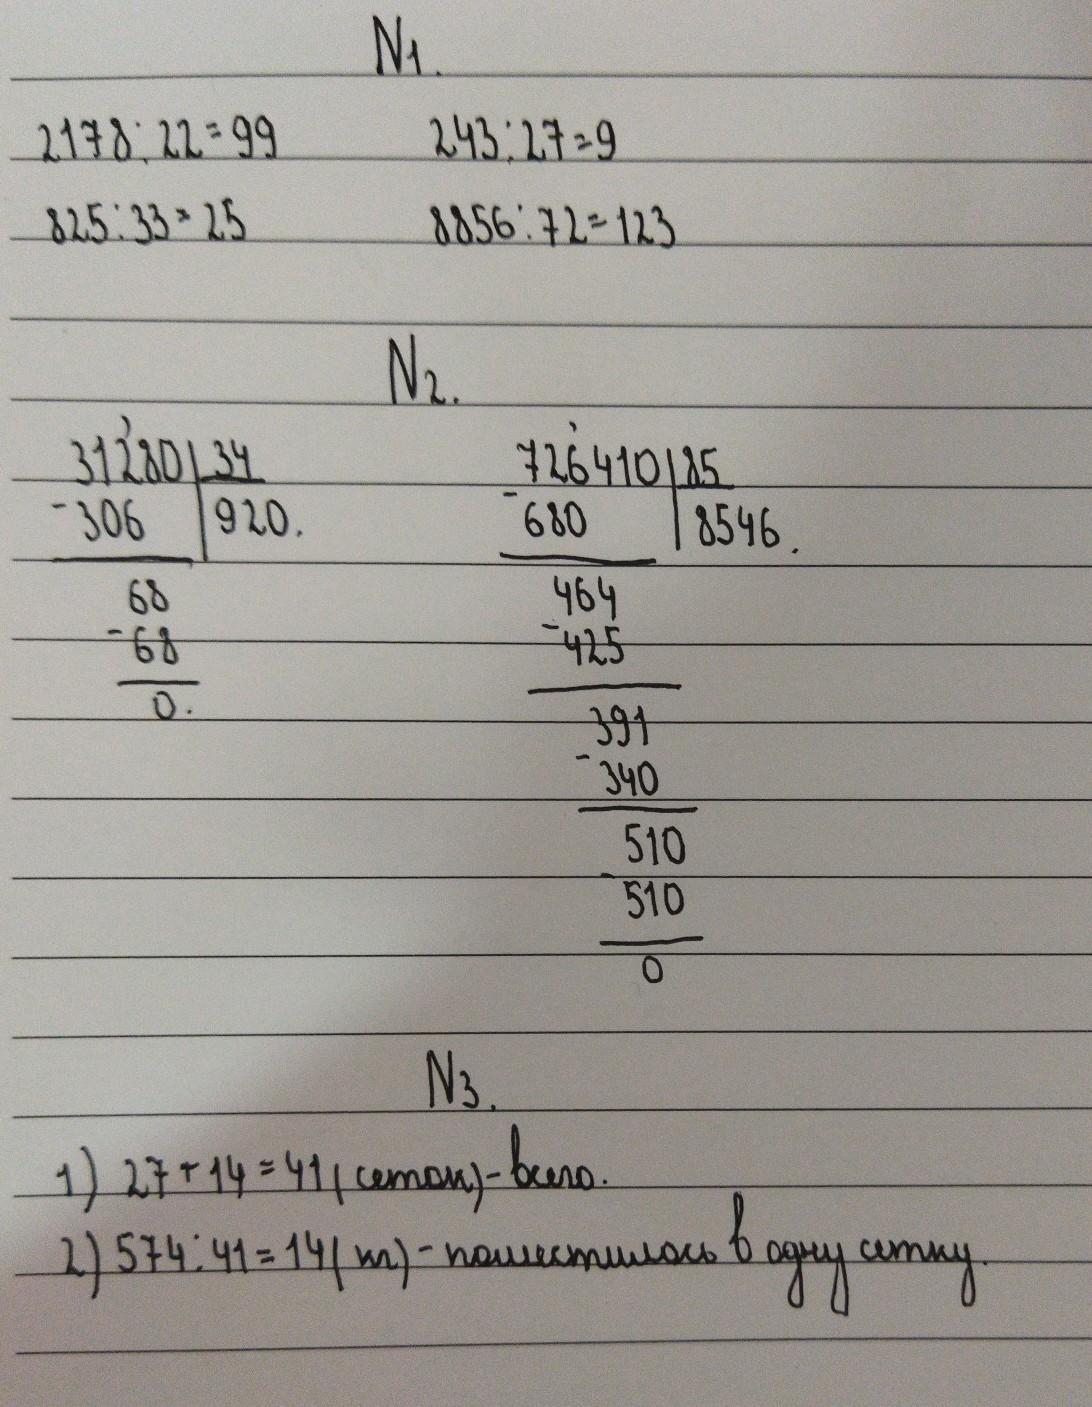 N1.
2178:22=99 243:27=9
825:33=25 8856:72=123
N2.
31280 34 726410 85
-306 920. -680 8546.
68 464
-68 -425
0. 391
-340
510
-510
0
N3.
1) 27+14=41 (сеток)-всего.
2) 574:41=14(кг)-поместилось в одну сетку.